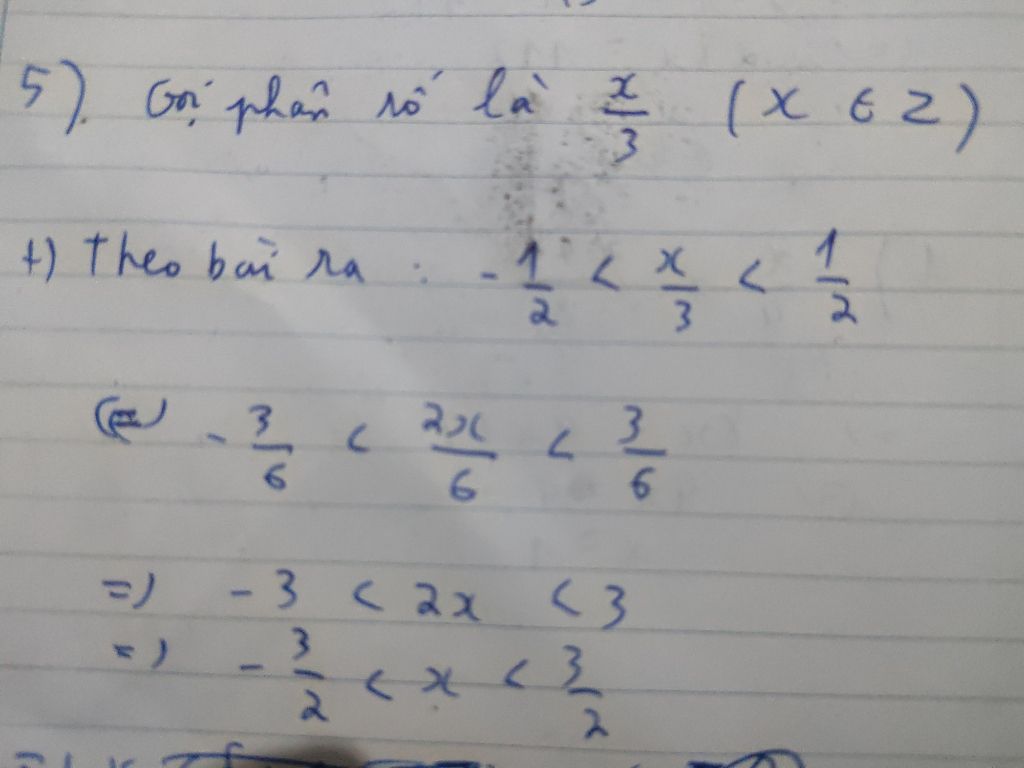 5). Gọi phân số là x/3 (x ∈ Z)
+) Theo bài ra : -1/2 < x/3 < 1/2
(=) -3/6 < 2x/6 < 3/6
=) -3 < 2x < 3
=) -3/2 < x < 3/2